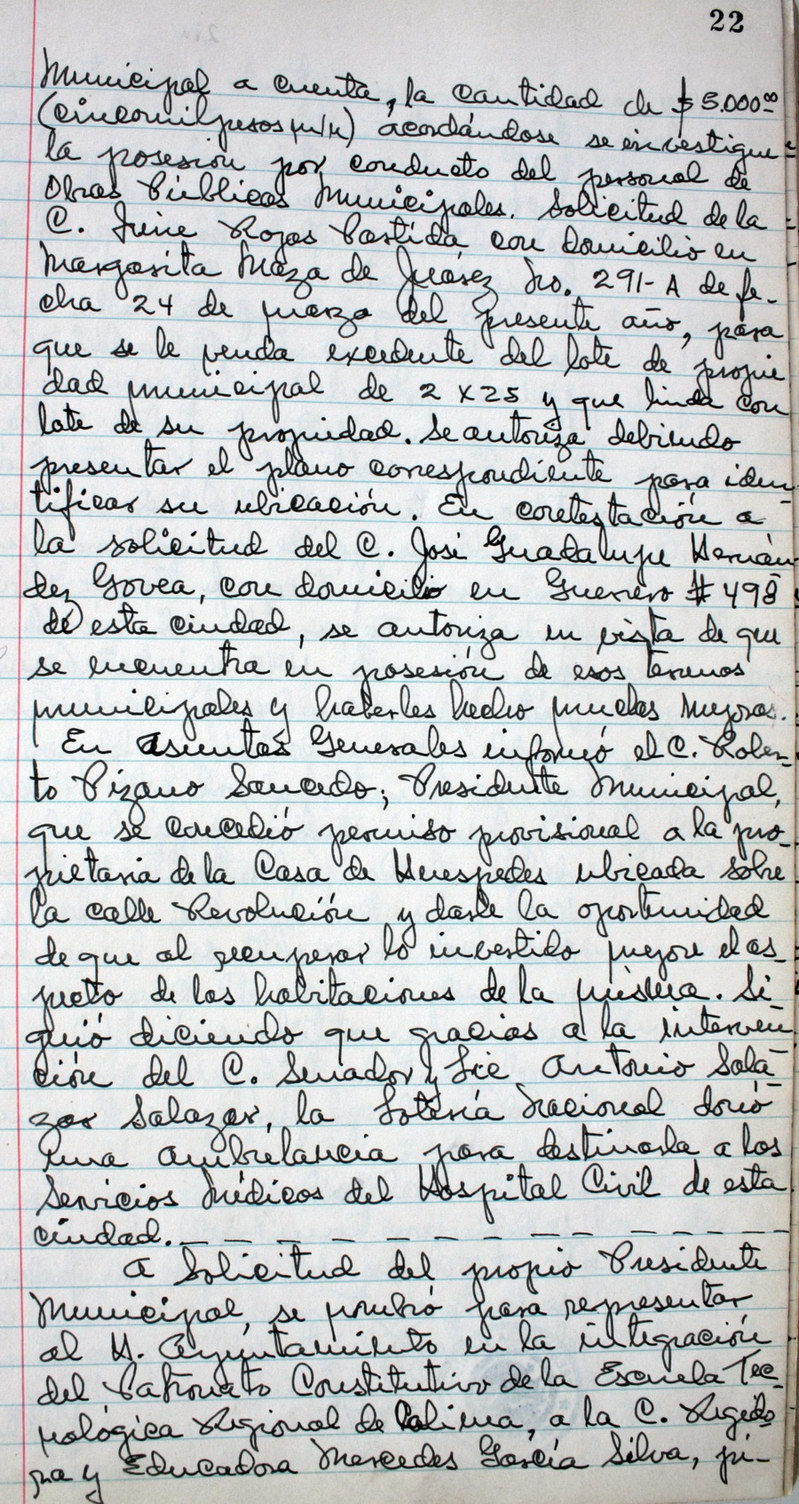 22
Municipal a cuenta, la cantidad de $5.000⁰⁰
(cincomil pesos m/n) acordándose se investigue
la posesión por conducto del personal de
Obras Públicas Municipales. Solicitud de la
C. Irene Rojas Partida con domicilio en
Margarita Maza de Juárez No. 291-A de fe-
cha 24 de marzo del presente año, para
que se le venda excedente del lote de propie
dad municipal de 2 x 25 y que linda con
lote de su propiedad. Se autoriza debiendo
presentar el plano correspondiente para iden-
tificar su ubicación. En contestación a
la solicitud del C. José Guadalupe Hernán-
dez Govea, con domicilio en Guerrero # 498
de esta ciudad, se autoriza en vista de que
se encuentra en posesión de esos terrenos
municipales y haberles hecho muchas mejoras.
En Asuntos Generales informó el C. Rober-
to Pizano Saucedo, Presidente Municipal,
que se concedió permiso provisional a la pro-
pietaria de la Casa de Huespedes ubicada sobre
la calle Revolución y darle la oportunidad
de que al recuperar lo invertido mejore el as-
pecto de las habitaciones de la misma. Si
guió diciendo que gracias a la interven
ción del C. Senador y Lic. Antonio Sala-
zar Salazar, la Lotería Nacional donó
una ambulancia para destinarla a los
Servicios Médicos del Hospital Civil de esta
ciudad. _ _ _ _ _ _ _ _ _ _ _ _
A Solicitud del propio Presidente
Municipal, se nombró para representar
al H. Ayuntamiento en la integración
del Patronato Constitutivo de la Escuela Tec-
nológica Regional de Colima, a la C. Regido
ra y Educadora Mercedes García Silva, pi-